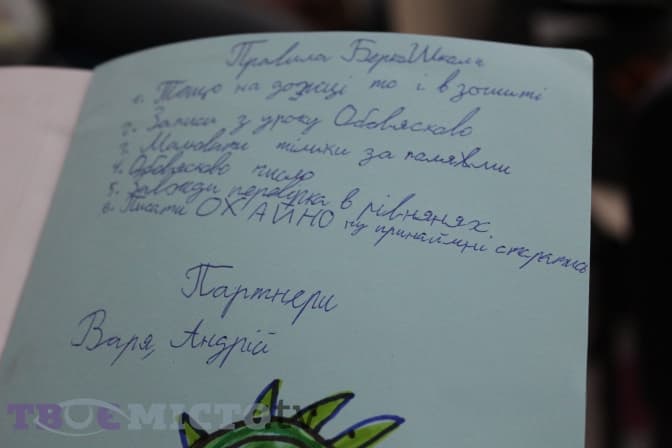 Правила БеркоШкола
1. Тощо на дожці то і в зошиті
2. Записи з уроку Обовяско­во
3. Малювати тільки за полями
4. Обовясково число
5. Завжди перевірка в рівнянях.
6. Писати ОХАЙНО ну принаймні старатись
Партнери
Варя, Андрій
ТВОЄ МІСТО.tv